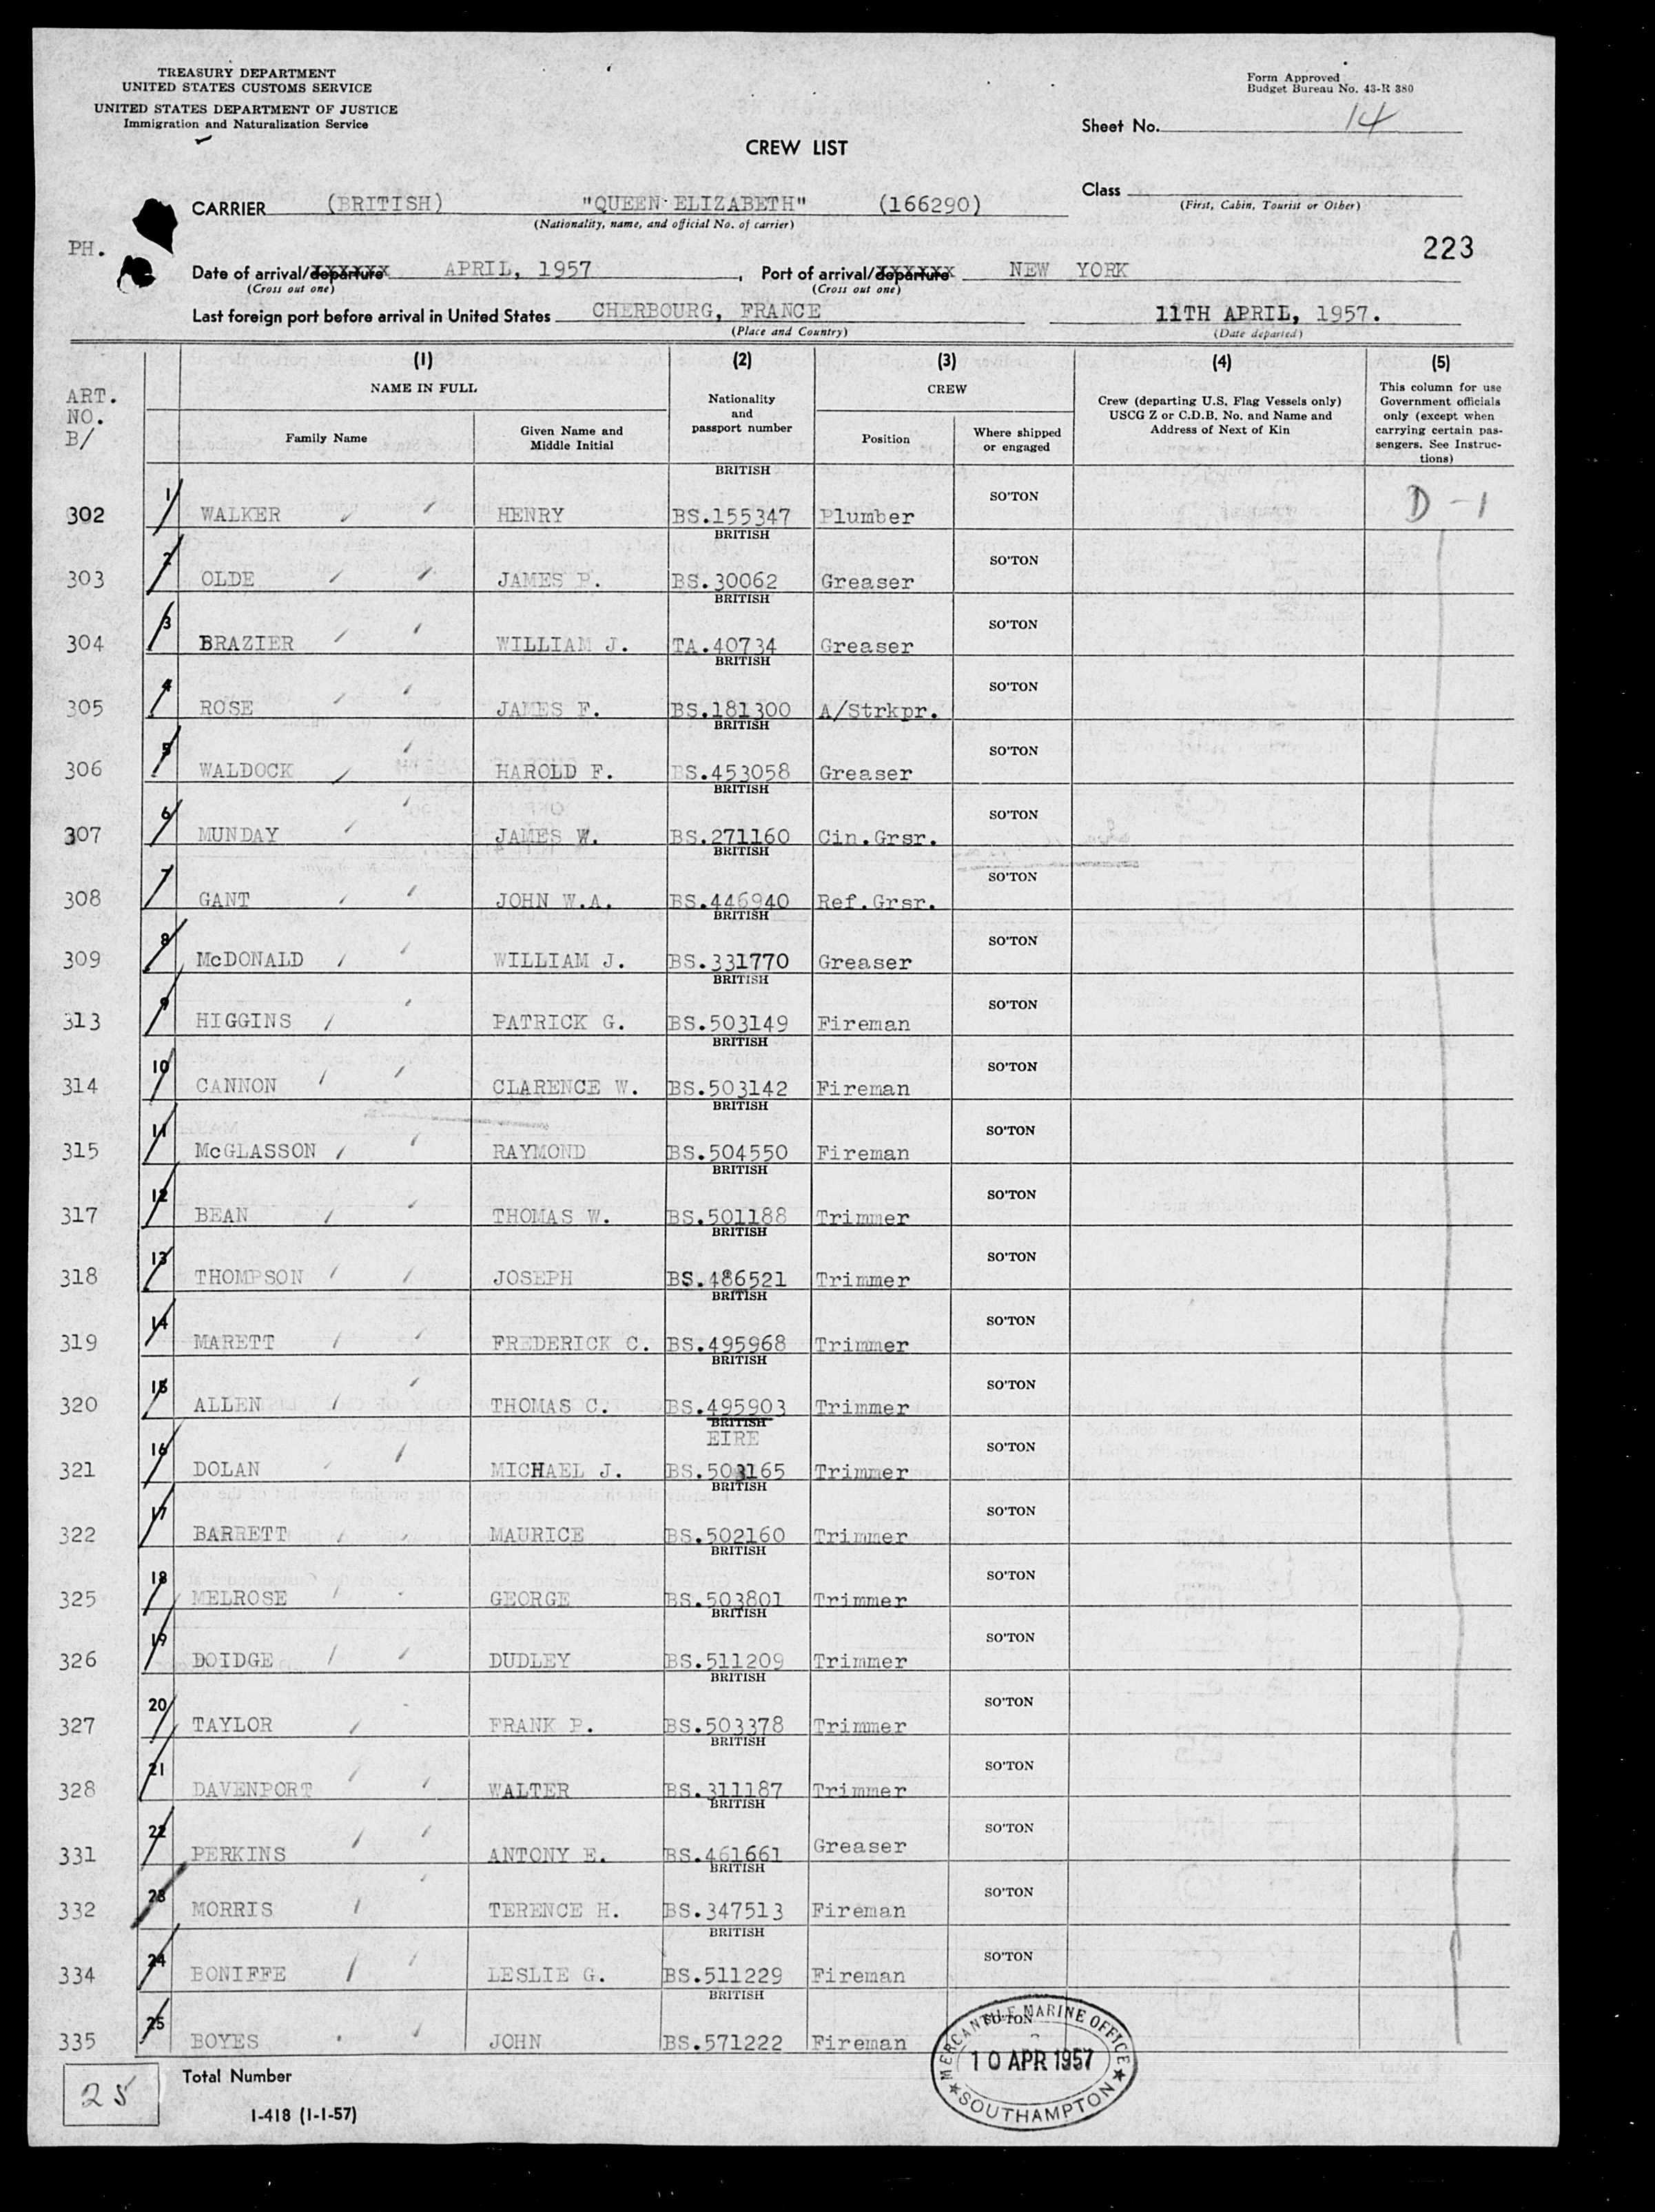 TREASURY DEPARTMENT
UNITED STATES CUSTOMS SERVICE
UNITED STATES DEPARTMENT OF JUSTICE
Immigration and Naturalization Service
Form Approved
Budget Bureau No. 43-R 380
Sheet No. 14
CREW LIST
Class
(First, Cabin, Tourist or Other)
CARRIER (BRITISH) "QUEEN ELIZABETH" (166290)
(Nationality, name, and official No. of carrier)
PH.
223
Date of arrival/departure APRIL, 1957, Port of arrival/departure NEW YORK
(Cross out one) (Cross out one)
Last foreign port before arrival in United States CHERBOURG, FRANCE 11TH APRIL, 1957.
(Place and Country) (Date departed)
ART. NO. B/
(1) (2) (3) (4) (5)
NAME IN FULL
Family Name
Given Name and Middle Initial
Nationality and passport number
CREW
Position
Where shipped or engaged
Crew (departing U.S. Flag Vessels only) USCG Z or C.D.B. No. and Name and Address of Next of Kin
This column for use Government officials only (except when carrying certain passengers. See Instructions)
302 1 WALKER HENRY BRITISH BS.155347 Plumber SO'TON D-1
303 2 OLDE JAMES P. BRITISH BS.30062 Greaser SO'TON
304 3 BRAZIER WILLIAM J. BRITISH TA.40734 Greaser SO'TON
305 4 ROSE JAMES F. BRITISH BS.181300 A/Strkpr. SO'TON
306 5 WALDOCK HAROLD F. BRITISH BS.453058 Greaser SO'TON
307 6 MUNDAY JAMES W. BRITISH BS.271160 Cin.Grsr. SO'TON
308 7 GANT JOHN W.A. BRITISH BS.446940 Ref.Grsr. SO'TON
309 8 McDONALD WILLIAM J. BRITISH BS.331770 Greaser SO'TON
313 9 HIGGINS PATRICK G. BRITISH BS.503149 Fireman SO'TON
314 10 CANNON CLARENCE W. BRITISH BS.503142 Fireman SO'TON
315 11 McGLASSON RAYMOND BRITISH BS.504550 Fireman SO'TON
317 12 BEAN THOMAS W. BRITISH BS.501188 Trimmer SO'TON
318 13 THOMPSON JOSEPH BRITISH BS.486521 Trimmer SO'TON
319 14 MARETT FREDERICK C. BRITISH BS.495968 Trimmer SO'TON
320 15 ALLEN THOMAS C. BRITISH BS.495903 Trimmer SO'TON
321 16 DOLAN MICHAEL J. BRITISH EIRE BS.503165 Trimmer SO'TON
322 17 BARRETT MAURICE BRITISH BS.502160 Trimmer SO'TON
325 18 MELROSE GEORGE BRITISH BS.503801 Trimmer SO'TON
326 19 DOIDGE DUDLEY BRITISH BS.511209 Trimmer SO'TON
327 20 TAYLOR FRANK P. BRITISH BS.503378 Trimmer SO'TON
328 21 DAVENPORT WALTER BRITISH BS.311187 Trimmer SO'TON
331 22 PERKINS ANTONY E. BRITISH BS.461661 Greaser SO'TON
332 23 MORRIS TERENCE H. BRITISH BS.347513 Fireman SO'TON
334 24 BONIFFE LESLIE G. BRITISH BS.511229 Fireman SO'TON
335 25 BOYES JOHN BRITISH BS.571222 Fireman SO'TON
25 Total Number
I-418 (1-1-57)
MERCANTILE MARINE OFFICE
10 APR 1957
SOUTHAMPTON